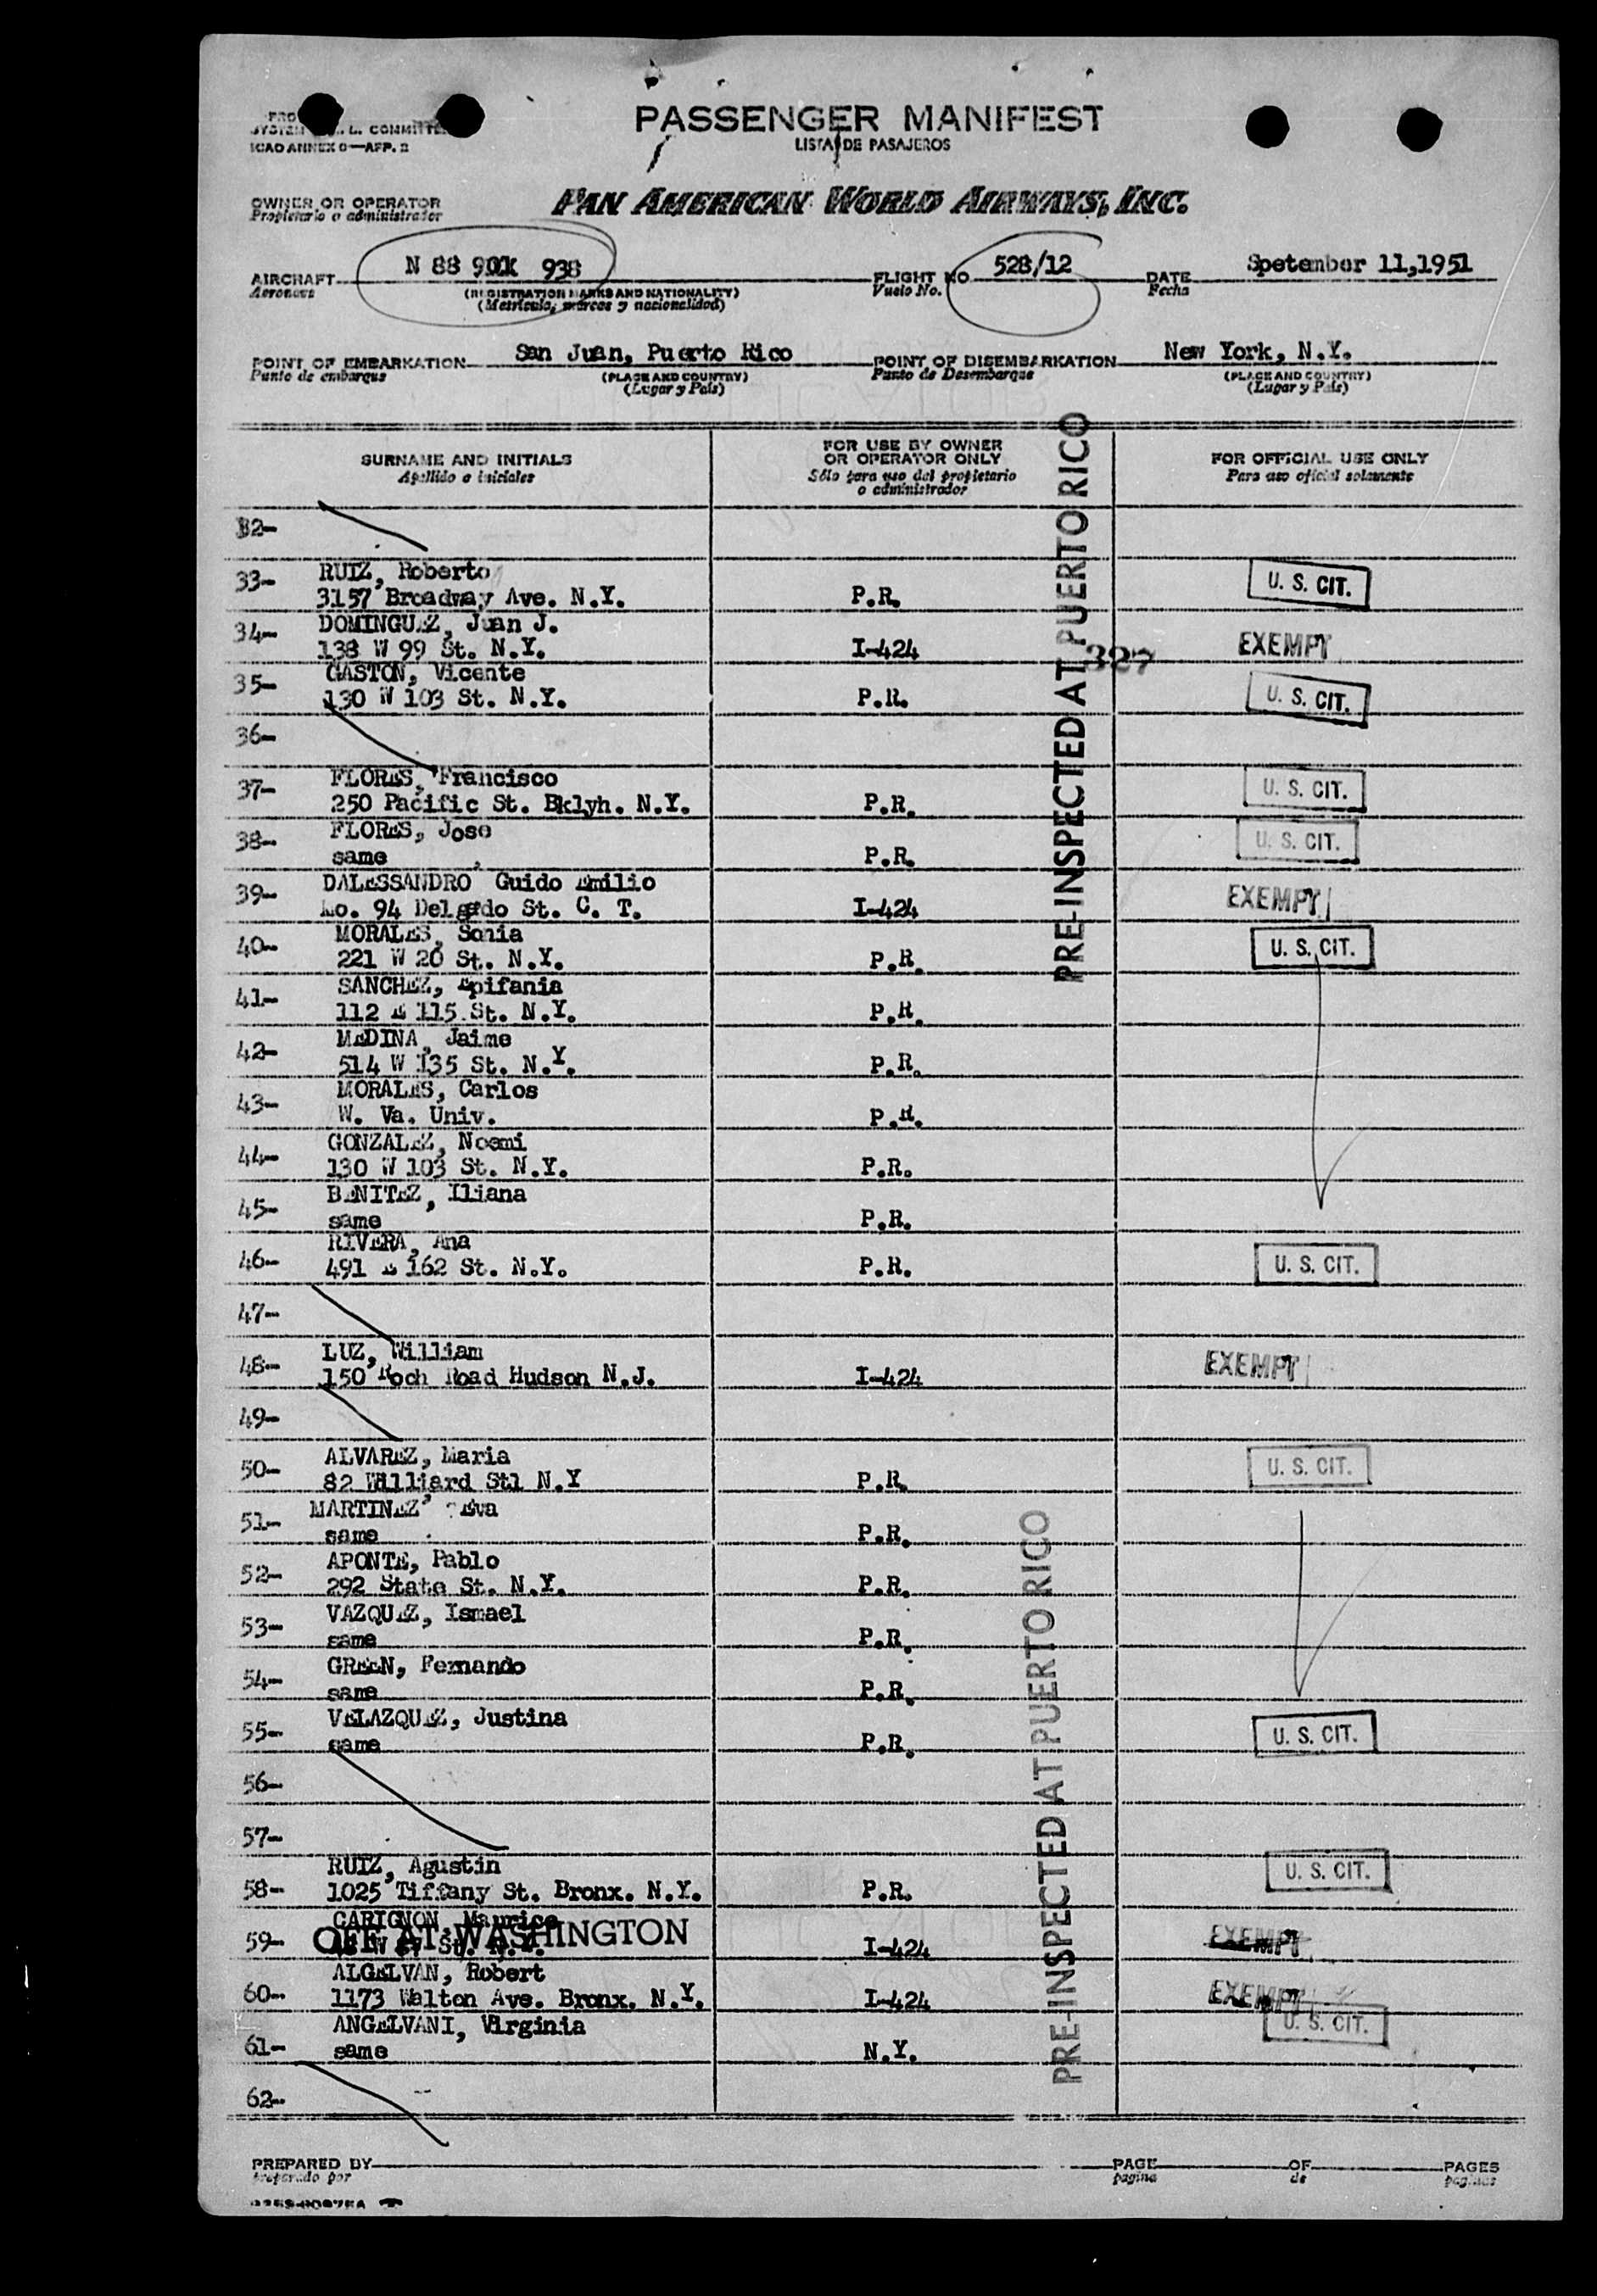 PASSENGER MANIFEST
LISTA DE PASAJEROS
L. COMMITTE
ICAO ANNEX 9—APP. 2
OWNER OR OPERATOR
Propietario o administrador
PAN AMERICAN WORLD AIRWAYS, INC.
AIRCRAFT N 88 938 FLIGHT NO 528/12 DATE Spetember 11,1951
Aeronave (REGISTRATION MARKS AND NATIONALITY) Vuelo No. Fecha
(Matricula, marcas y nacionalidad)
POINT OF EMBARKATION San Juan, Puerto Rico POINT OF DISEMBARKATION New York, N.Y.
Punto de embarque (PLACE AND COUNTRY) Punto de Desembarque (PLACE AND COUNTRY)
(Lugar y País) (Lugar y País)
SURNAME AND INITIALS FOR USE BY OWNER OR OPERATOR ONLY FOR OFFICIAL USE ONLY
Apellido e iniciales Sólo para uso del propietario o administrador Para uso oficial solamente
PRE-INSPECTED AT PUERTO RICO
32-
33- RUIZ, Roberto
3157 Broadway Ave. N.Y. P.R. U. S. CIT.
34- DOMINGUEZ, Juan J.
138 W 99 St. N.Y. I-424 327 EXEMPT
35- GASTON, Vicente
130 W 103 St. N.Y. P.R. U. S. CIT.
36-
37- FLORES, Francisco
250 Pacific St. Bklyh. N.Y. P.R. U. S. CIT.
38- FLORES, Jose
same P.R. U. S. CIT.
39- DALESSANDRO Guido Emilio
No. 94 Delgado St. C. T. I-424 EXEMPT
40- MORALES, Sonia
221 W 20 St. N.Y. P.R. U. S. CIT.
41- SANCHEZ, Epifania
112 E 115 St. N.Y. P.R.
42- MEDINA, Jaime
514 W 135 St. N.Y. P.R.
43- MORALES, Carlos
W. Va. Univ. P.R.
44- GONZALEZ, Noemi
130 W 103 St. N.Y. P.R.
45- BENITEZ, Iliana
same P.R.
46- RIVERA, Ana
491 E 162 St. N.Y. P.R. U. S. CIT.
47-
48- LUZ, William
150 Roch Road Hudson N.J. I-424 EXEMPT
49-
50- ALVAREZ, Maria
82 Williard Stl N.Y P.R. U. S. CIT.
51- MARTINEZ, Eva
same P.R.
PRE-INSPECTED AT PUERTO RICO
52- APONTE, Pablo
292 State St. N.Y. P.R.
53- VAZQUEZ, Ismael
same P.R.
54- GREEN, Fernando
same P.R.
55- VELAZQUEZ, Justina
same P.R. U. S. CIT.
56-
57-
58- RUIZ, Agustin
1025 Tiffany St. Bronx. N.Y. P.R. U. S. CIT.
59- CARIGNON, Maurice
OFF AT WASHINGTON I-424 EXEMPT
60- ALGELVAN, Robert
1173 Walton Ave. Bronx. N.Y. I-424 EXEMPT
61- ANGELVANI, Virginia
same N.Y. U. S. CIT.
62-
PREPARED BY PAGE OF PAGES
preparado por pagina de paginas